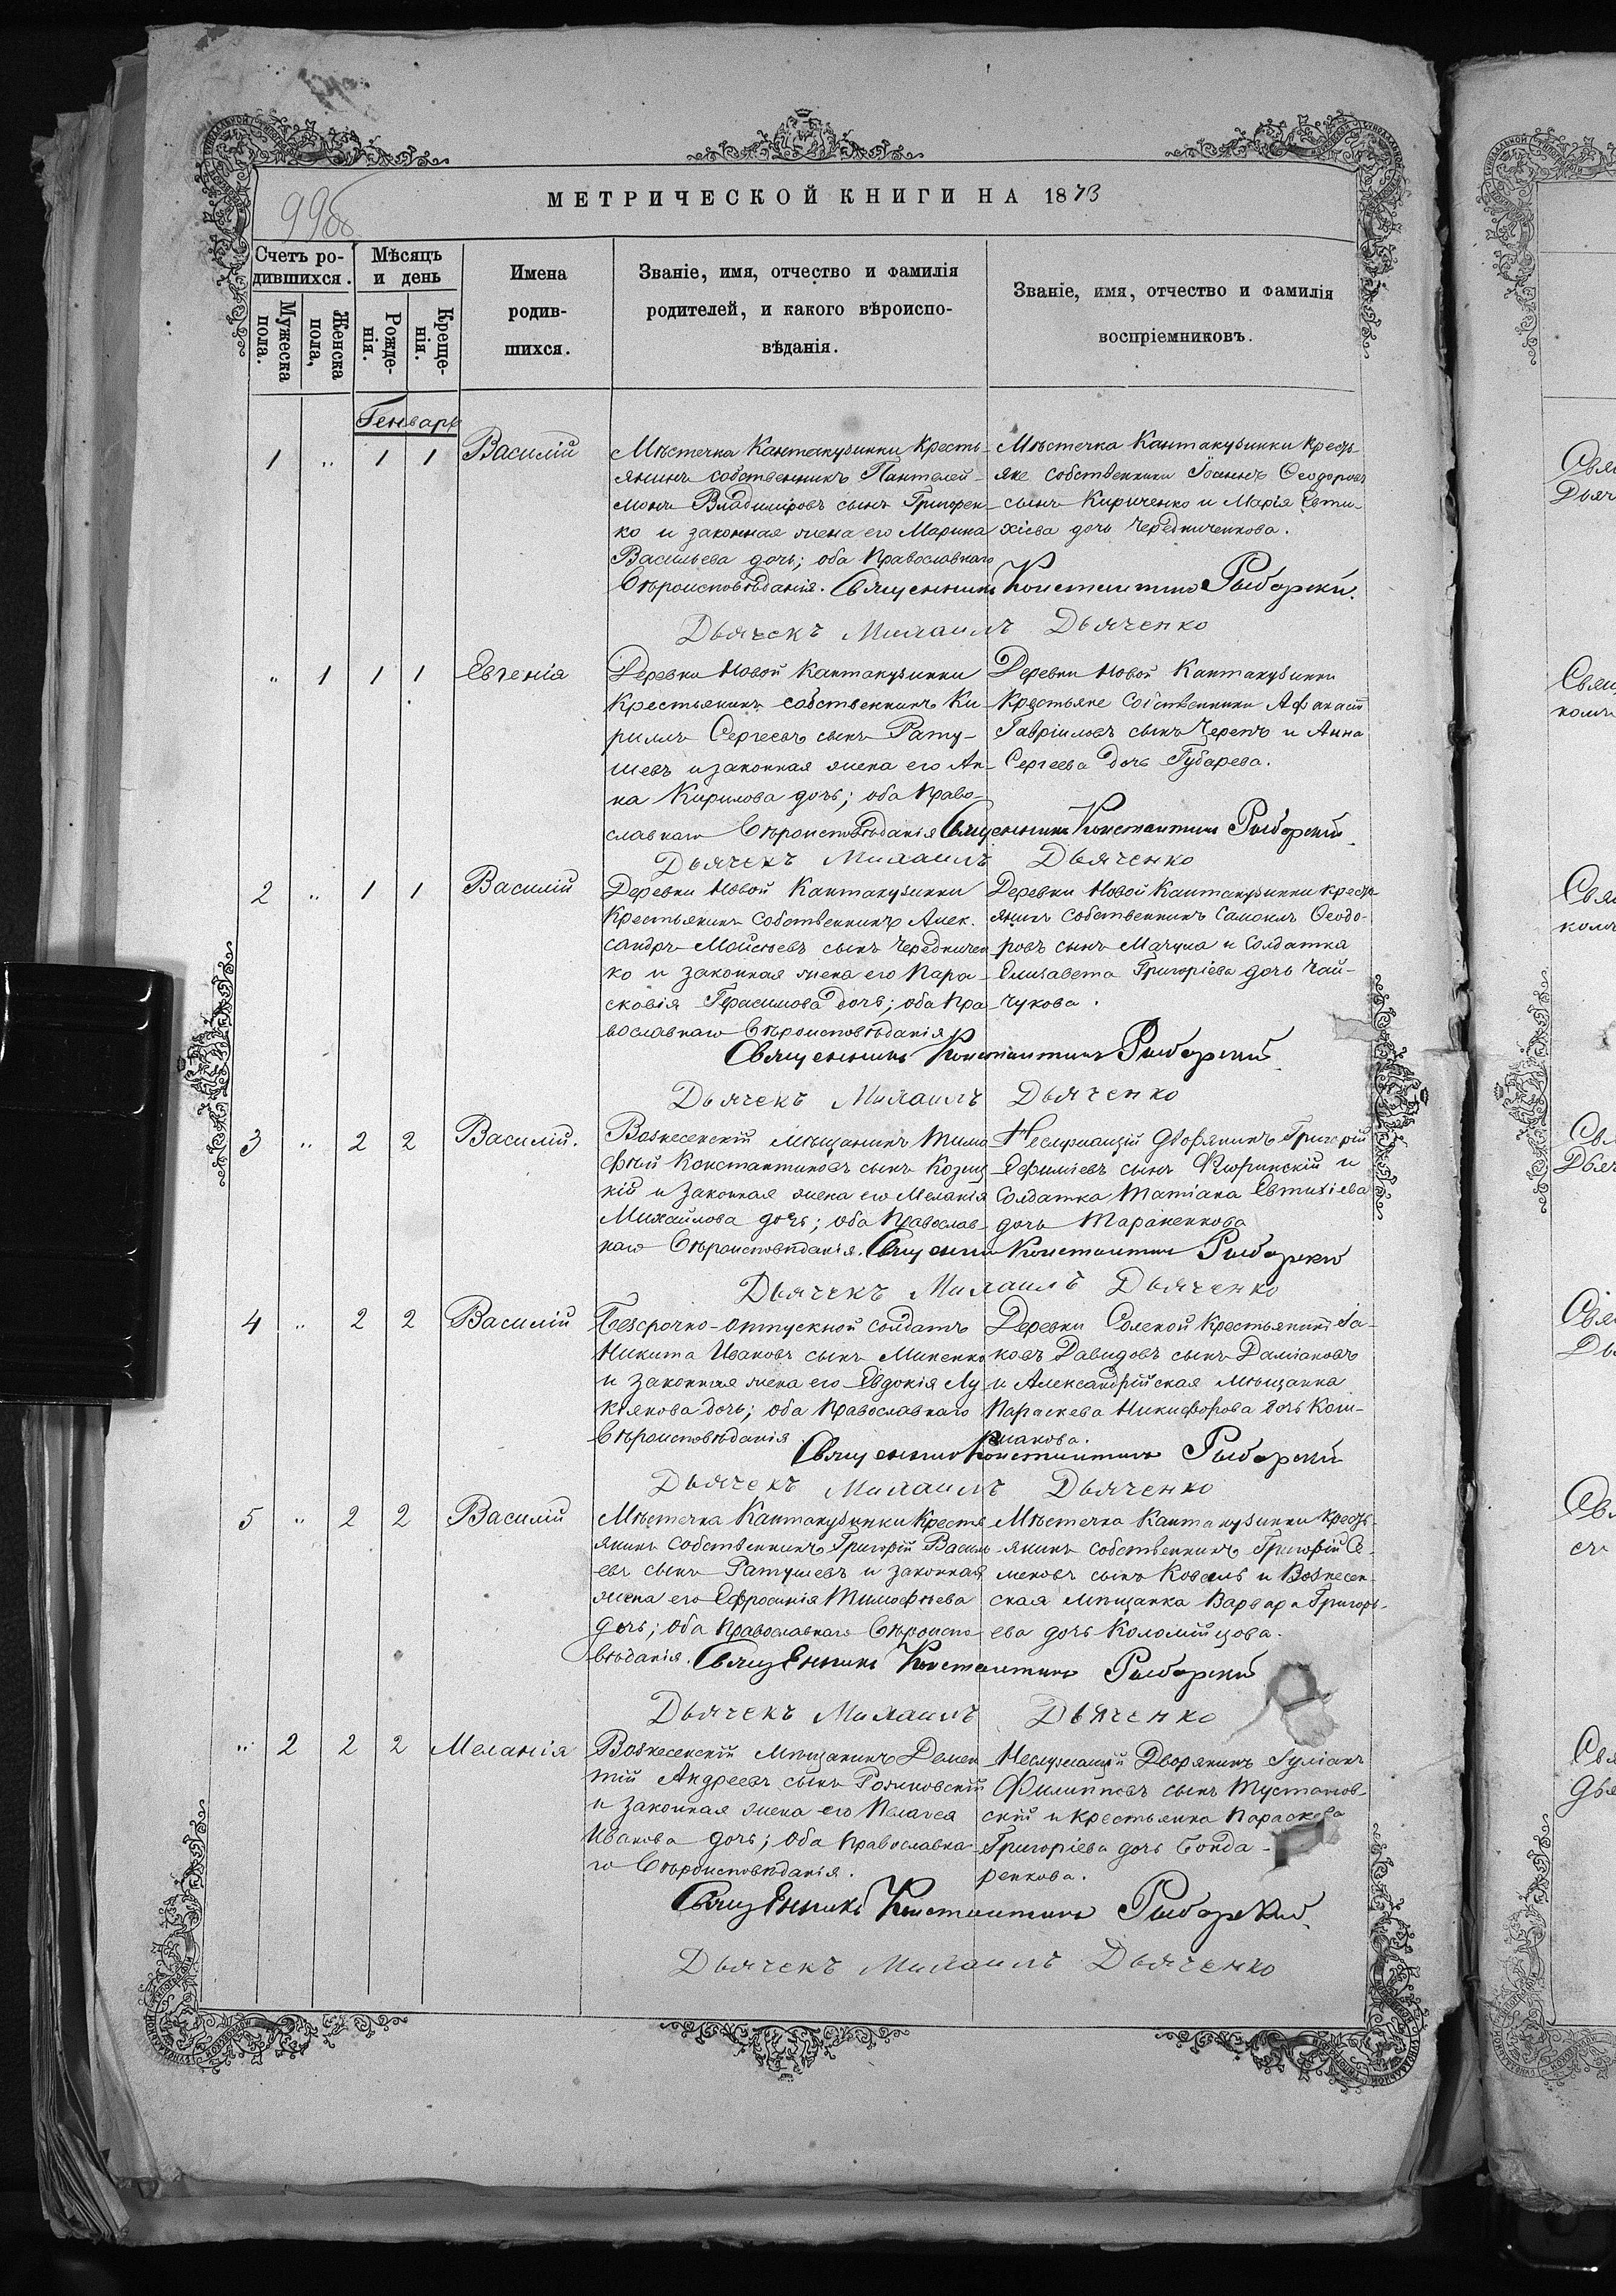 МЕТРИЧЕСКОЙ КНИГИ НА 1873
99об
Счетъ ро-
дившихся.
Мѣсяцъ
и день
Мужеска
пола.
Женска
пола,
Рожде-
нія.
Креще-
нія.
Имена
родив-
шихся.
Званіе, имя, отчество и фамилія
родителей, и какого вѣроиспо-
вѣданія.
Званіе, имя, отчество и фамилія
воспріемниковъ.
Генварь
1 " 1 1 Василій
Мѣстечка Кантакузинки Кресть-
янинъ собственникъ Пантелей-
монъ Владиміровъ сынъ Григорен-
ко и законная жена его Марина
Васильева дочь; оба Православнаго
Вѣроисповѣданія.
Мѣстечка Кантакузинки Кресть-
яне собственники Іоаннъ Ѳеодоровъ
сынъ Кириченко и Марія Евти-
хіева дочь Чередниченкова.
Священникъ Константинъ Рыбарскій.
Дьячекъ Михаилъ Дьяченко
" 1 1 1 Евгенія
Деревни Новой Кантакузинки
Крестьянинъ собственникъ Ки-
риллъ Сергеевъ сынъ Рату-
шевъ и законная жена его Ан-
на Кирилова дочь; оба Право-
славнаго Вѣроисповѣданія
Деревни Новой Кантакузинки
Крестьяне Собственники Афанасій
Гавріиловъ сынъ Черепъ и Анна
Сергеева дочь Губарева.
Священникъ Константинъ Рыбарскій
Дьячекъ Михаилъ Дьяченко
2 " 1 1 Василій
Деревни Новой Кантакузинки
Крестьянинъ Собственникъ Алек.
сандръ Мойсеевъ сынъ Чередничен
ко и законная жена его Пара-
сковія Герасимова дочь; оба Пра
вославнаго Вѣроисповѣданія
Деревни Новой Кантакузинки кресть
янинъ собственникъ Самоилъ Ѳеодо-
ровъ сынъ Мачула и Солдатка
Елисавета Григоріева дочь Чай-
чукова.
Священникъ Константинъ Рыбарскій
Дьячекъ Михаилъ Дьяченко
3 " 2 2 Василій.
Вознесенскій мѣщанинъ Тимо
фѣй Константиновъ сынъ Козиц
кій и законная жена его Меланія
Михайлова дочь; оба Православ-
наго Вѣроисповѣданія.
Неслужащій Дворянинъ Григорій
Ефиміевъ сынъ и
Солдатка Татіана Евтихіева
дочь Тараненкова
Священникъ Константинъ Рыбарскій
Дьячекъ Михаилъ Дьяченко
4 " 2 2 Василій
Безсрочно-отпускной солдатъ
Никита Ивановъ сынъ Миненко
и законная жена его Евдокія Лу
кіянова дочь; оба Православнаго
Вѣроисповѣданія
Деревни Соленой Крестьянинъ Іа-
ковъ Давидовъ сынъ Даміановъ
и Александрійская мѣщанка
Параскева Никифорова дочь Кол-
пакова.
Священникъ Константинъ Рыбарскій
Дьячекъ Михаилъ Дьяченко
5 " 2 2 Василій
Мѣстечка Кантакузинки Крестья
янинъ Собственникъ Григорій Василь
евъ сынъ Ратушевъ и законная
жена его Ефросинія Тимофѣева
дочь; оба Православнаго Вѣроиспо-
вѣданія.
Мѣстечка Кантакузинки Кресть-
янинъ собственникъ Григорій Се
меновъ сынъ Коваль и Вознесен-
ская мѣщанка Варвара Григорь-
ева дочь Коломійцова.
Священникъ Константинъ Рыбарскій
Дьячекъ Михаилъ Дьяченко
" 2 2 2 Меланія
Вознесенскій Мѣщанинъ Демен
тій Андреевъ сынъ Рожковскій
и законная жена его Пелагея
Иванова дочь; оба Православна-
го Вѣроисповѣданія.
Неслужащій Дворянинъ Іуліанъ
Филипповъ сынъ Тустанов-
скій и крестьянка Параскева
Григоріева дочь Бонда-
ренкова.
Священникъ Константинъ Рыбарскій
Дьячекъ Михаилъ Дьяченко